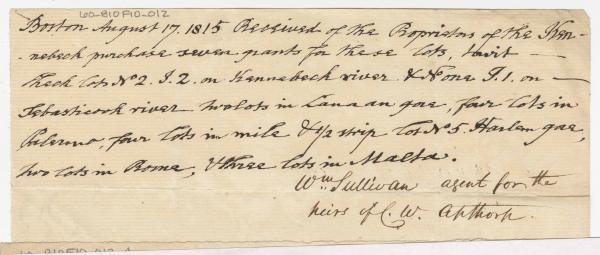 60-810F10-012
Boston August 17. 1815 Received of the Proprietors of the Ken-
-nebeck purchase seven grants for these lots, towit
Back lots No 2. I. 2. on Kennebeck river & No one I. 1. on
Sebasticook river two lots in Canaan gore, four lots in
Palermo, four lots in mile & 1/2 strip lot No 5. Harlem gore,
two lots in Rome, & three lots in Malta.
Wm Sullivan agent for the
heirs of C. W. Apthorp.